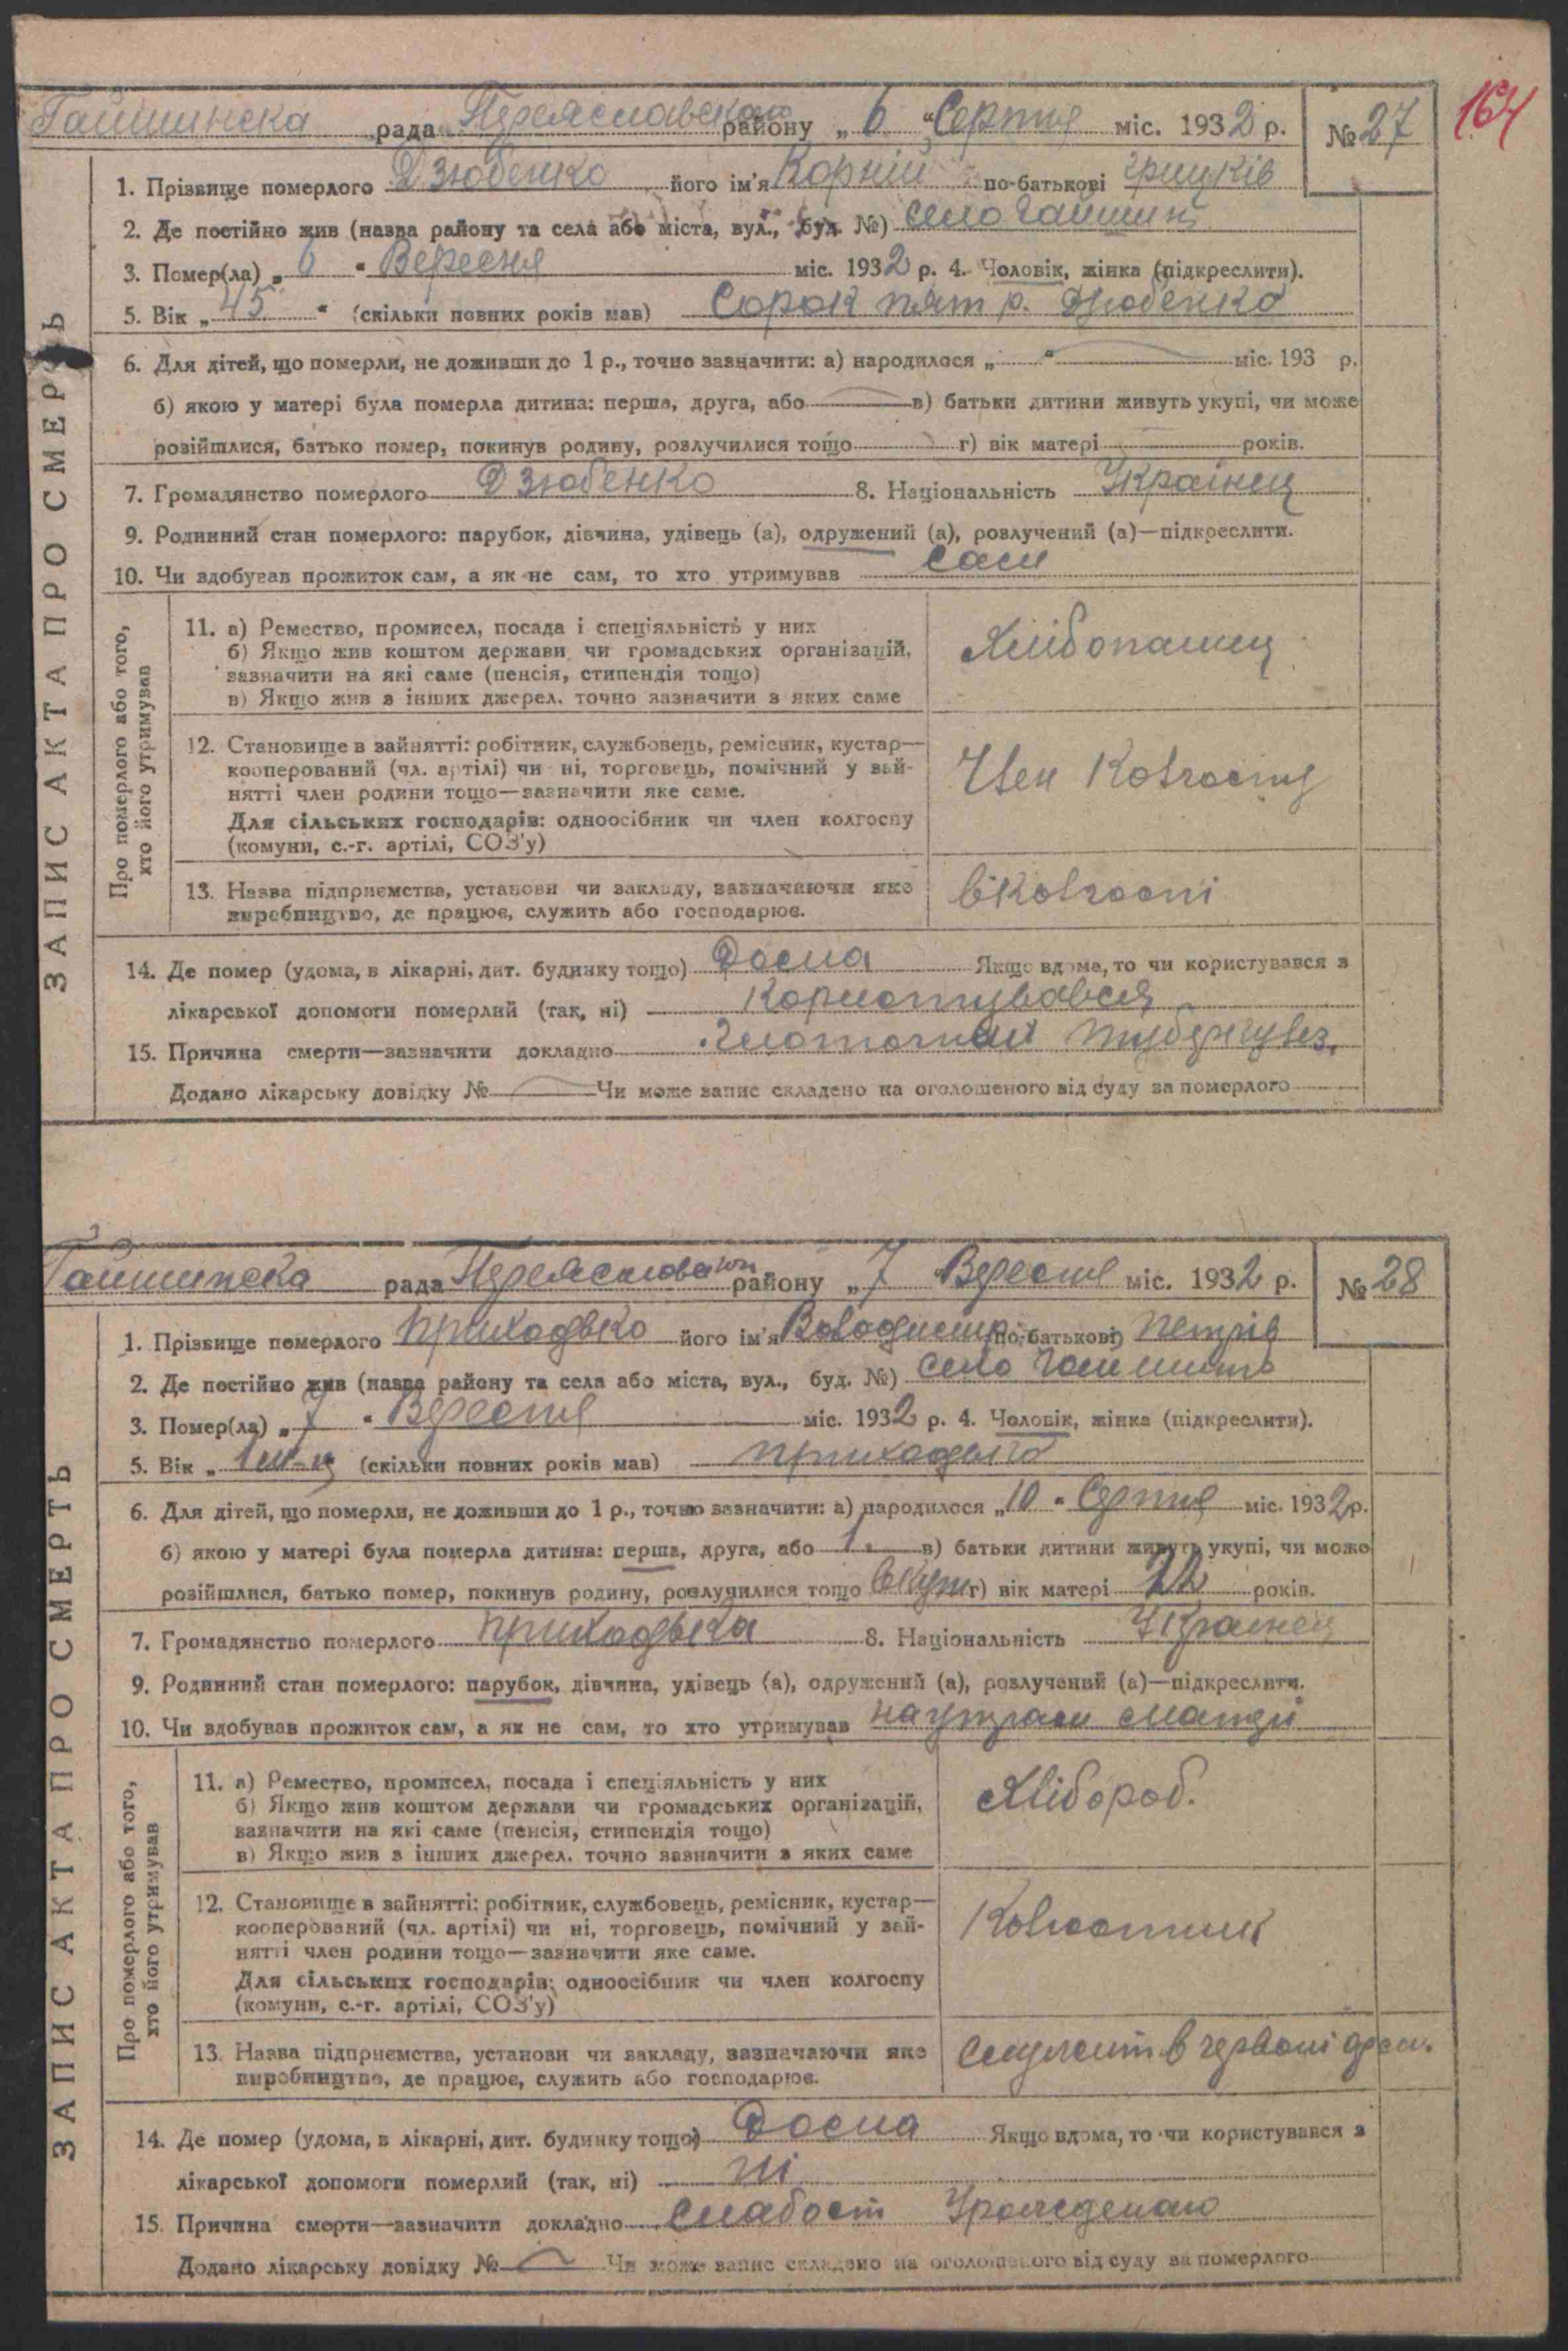 164
Гайшинска рада Переяславского району „ 6 “ Серпня міс. 1932 р. № 27
ЗАПИС АКТА ПРО СМЕРТЬ
1. Прізвище померлого Дзюбенко його ім'я Корній по-батькові Грицків
2. Де постійно жив (назва району та села або міста, вул., буд. №) село Гайшин
3. Помер(ла) „ 6 “ Вересня міс. 1932 р. 4. Чоловік, жінка (підкреслити).
5. Вік „ 45 “ (скільки повних років мав) Сорок пят р. Дзюбенко
6. Для дітей, що померли, не доживши до 1 р., точно зазначити: а) народилося „ “ міс. 193 р.
б) якою у матері була померла дитина: перша, друга, або в) батьки дитини живуть укупі, чи може
розійшлися, батько помер, покинув родину, розлучилися тощо г) вік матері років.
7. Громадянство померлого Дзюбенко 8. Національність Українец
9. Родинний стан померлого: парубок, дівчина, удівець (а), одружений (а), розлучений (а)—підкреслити.
10. Чи здобував прожиток сам, а як не сам, то хто утримував сам
Про померлого або того, хто його утримував
11. а) Ремество, промисел, посада і спеціяльність у них
б) Якщо жив коштом держави чи громадських організацій, зазначити на які саме (пенсія, стипендія тощо)
в) Якщо жив з інших джерел, точно зазначити з яких саме
Хлібопашец
12. Становище в зайнятті: робітник, службовець, ремісник, кустар—
кооперований (чл. артілі) чи ні, торговець, помічний у зай-
нятті член родини тощо—зазначити яке саме.
Для сільських господарів: одноосібник чи член колгоспу
(комуни, с.-г. артілі, СОЗ'у)
Член Колгоспу
13. Назва підприємства, установи чи закладу, зазначаючи яке
виробництво, де працює, служить або господарює.
вколгоспі
14. Де помер (удома, в лікарні, дит. будинку тощо) Дома Якщо вдома, то чи користувався з
лікарської допомоги померлий (так, ні) Користувався
15. Причина смерти—зазначити докладно туберкульоз
Додано лікарську довідку № Чи може запис складено на оголошеного від суду за померлого
Гайшинска рада Переяславськ району „ 7 “ Вересня міс. 1932 р. № 28
ЗАПИС АКТА ПРО СМЕРТЬ
1. Прізвище померлого Приходько його ім'я Володимир по-батькові Петрів
2. Де постійно жив (назва району та села або міста, вул., буд. №) село Гайшин
3. Помер(ла) „ 7 “ Вересня міс. 1932 р. 4. Чоловік, жінка (підкреслити).
5. Вік „ 1 м-ц (скільки повних років мав) Приходько
6. Для дітей, що померли, не доживши до 1 р., точно зазначити: а) народилося „ 10 “ Серпня міс. 1932 р.
б) якою у матері була померла дитина: перша, друга, або 1 в) батьки дитини живуть укупі, чи може
розійшлися, батько помер, покинув родину, розлучилися тощо вкупі г) вік матері 22 років.
7. Громадянство померлого Приходька 8. Національність Українец
9. Родинний стан померлого: парубок, дівчина, удівець (а), одружений (а), розлучений (а)—підкреслити.
10. Чи здобував прожиток сам, а як не сам, то хто утримував на утрим матері
Про померлого або того, хто його утримував
11. а) Ремество, промисел, посада і спеціяльність у них
б) Якщо жив коштом держави чи громадських організацій,
зазначити на які саме (пенсія, стипендія тощо)
в) Якщо жив з інших джерел, точно зазначити з яких саме
Хлібороб.
12. Становище в зайнятті: робітник, службовець, ремісник, кустар—
кооперований (чл. артілі) чи ні, торговець, помічний у зай-
нятті член родини тощо—зазначити яке саме.
Для сільських господарів: одноосібник чи член колгоспу
(комуни, с.-г. артілі, СОЗ'у)
Колгоспник
13. Назва підприємства, установи чи закладу, зазначаючи яке
виробництво, де працює, служить або господарює.
служит в червоні арм.
14. Де помер (удома, в лікарні, дит. будинку тощо) Дома Якщо вдома, то чи користувався з
лікарської допомоги померлий (так, ні) ні
15. Причина смерти—зазначити докладно слабост
Додано лікарську довідку № Чи може запис складено на оголошеного від суду за померлого